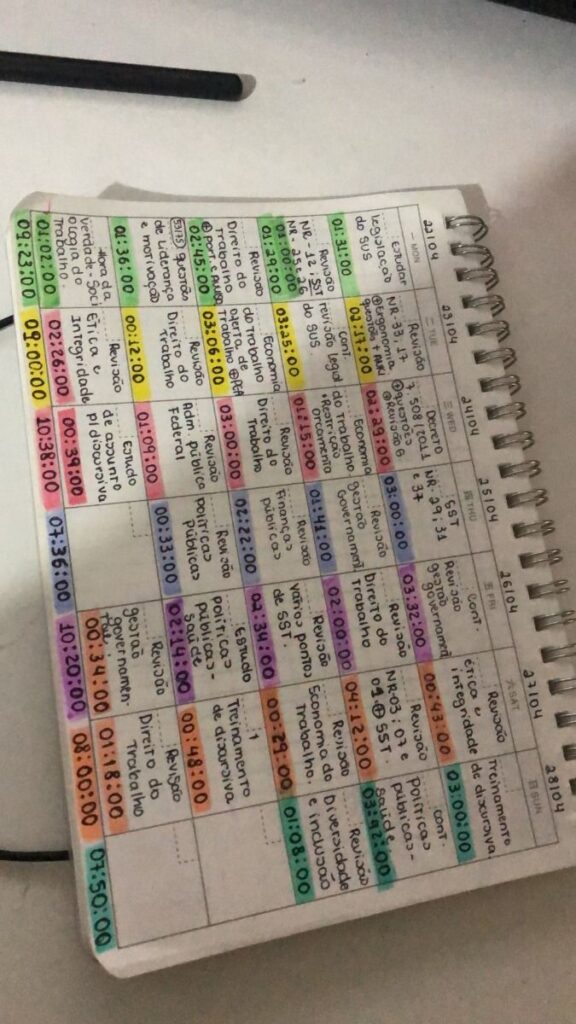 一 MON
22/04
Estudar
legislação
do SUS
01:31:00
Revisão
NR-12; SST
NR-25 e 26
01:00:00
01:29:00
Revisão
Direito do
Trabalho
02:45:00
53/75 questões
de Liderança
e motivação
01:36:00
Hora da
Verdade-Soci
ologia do
Trabalho.
01:02:00
09:23:00
二 TUE
23/04
Revisão
NR-33, 17
⊕Ergonomia
02:17:00
Cont.
revisão legal
do SUS
03:25:00
Economia
do Trabalho
oferta de
Trabalho ⊕ PEA
03:06:00
Revisão
Direito do
Trabalho
00:12:00
Revisão
Ética e
Integridade
02:26:00
09:00:00
三 WED
24/04
Decreto
7.508
⊕questões
⊕Revisão
02:29:00
Economia
do Trabalho
•Restrição
orçamento
01:15:00
Revisão
Direito do
Trabalho
03:00:00
Revisão
Adm pública
Federal
01:09:00
Estudo
de assunto
p/ discursiva
00:39:00
10:38:00
四 THU
25/04
SST
NR-29;31
e 37
03:00:00
Revisão
gestão
Governamen.
01:41:00
Finanças
públicas
02:22:00
Revisão
políticas
públicas
00:33:00
07:36:00
五 FRI
26/04
Cont.
Revisão
gestão
governamen.
03:32:00
Revisão
Direito do
Trabalho
02:00:00
Revisão
vários pontos
de SST.
02:34:00
Estudo
políticas
públicas-
Saúde
02:14:00
Revisão
gestão
governamen-
00:34:00
10:20:00
六 SAT
27/04
Revisão
ética e
integridade
00:43:00
Revisão
NR-05; 07 e
09 ⊕ SST.
04:12:00
Revisão
Economia do
Trabalho.
00:29:00
Treinamento
de discursiva
00:48:00
Revisão
Direito do
Trabalho
01:18:00
08:00:00
日 SUN
28/04
Treinamento
de discursiva.
03:00:00
cont.
políticas
públicas-
saúde
03:42:00
Revisão
Diversidade
e inclusão
01:08:00
07:50:00